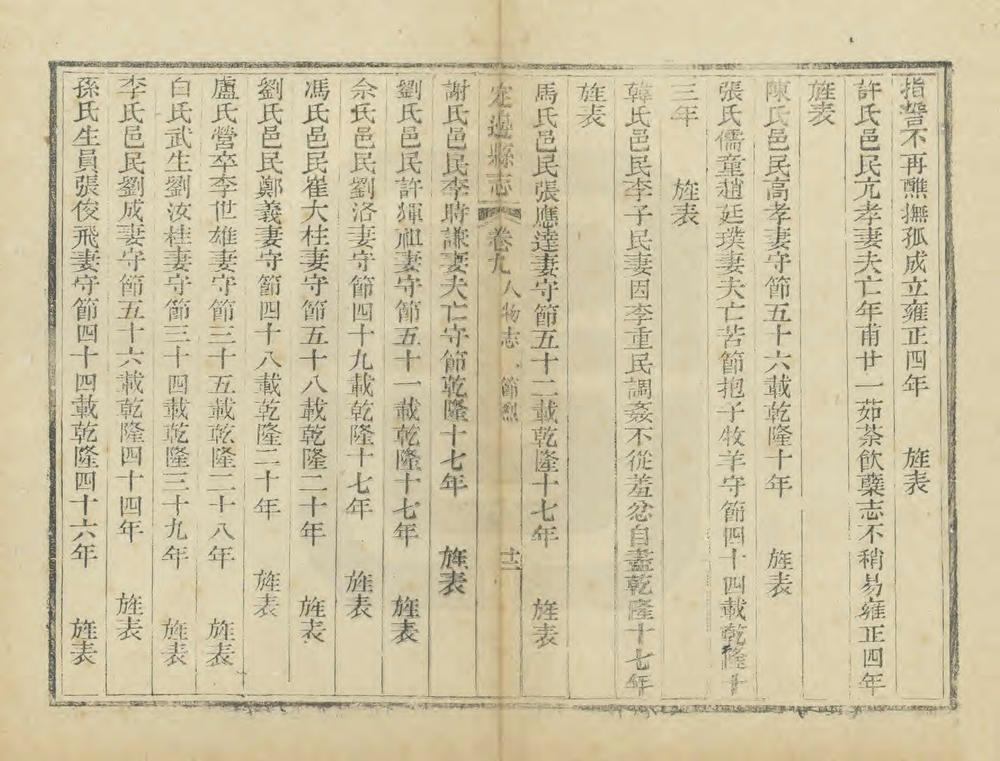 指誓不再醮撫孤成立雍正四年　旌表
許氏邑民亢孝妻夫亡年甫廿一茹茶飲蘗志不稍易雍正四年
旌表
陳氏邑民高孝妻守節五十六載乾隆十年　旌表
張氏儒童趙廷璞妻夫亡苦節抱子牧羊守節四十四載乾隆十
三年　旌表
韓氏邑民李子民妻因李重民調姦不從羞忿自盡乾隆十七年
旌表
馬氏邑民張應達妻守節五十二載乾隆十七年　旌表
定邊縣志　卷九　人物志　節烈　十二
謝氏邑民李時謙妻夫亡守節乾隆十七年　旌表
劉氏邑民許輝祖妻守節五十一載乾隆十七年　旌表
佘氏邑民劉洛妻守節四十九載乾隆十七年　旌表
馮氏邑民崔大柱妻守節五十八載乾隆二十年　旌表
劉氏邑民鄭義妻守節四十八載乾隆二十年　旌表
盧氏營卒李世雄妻守節三十五載乾隆二十八年　旌表
白氏武生劉汝桂妻守節三十四載乾隆三十九年　旌表
李氏邑民劉成妻守節五十六載乾隆四十四年　旌表
孫氏生員張俊飛妻守節四十四載乾隆四十六年　旌表